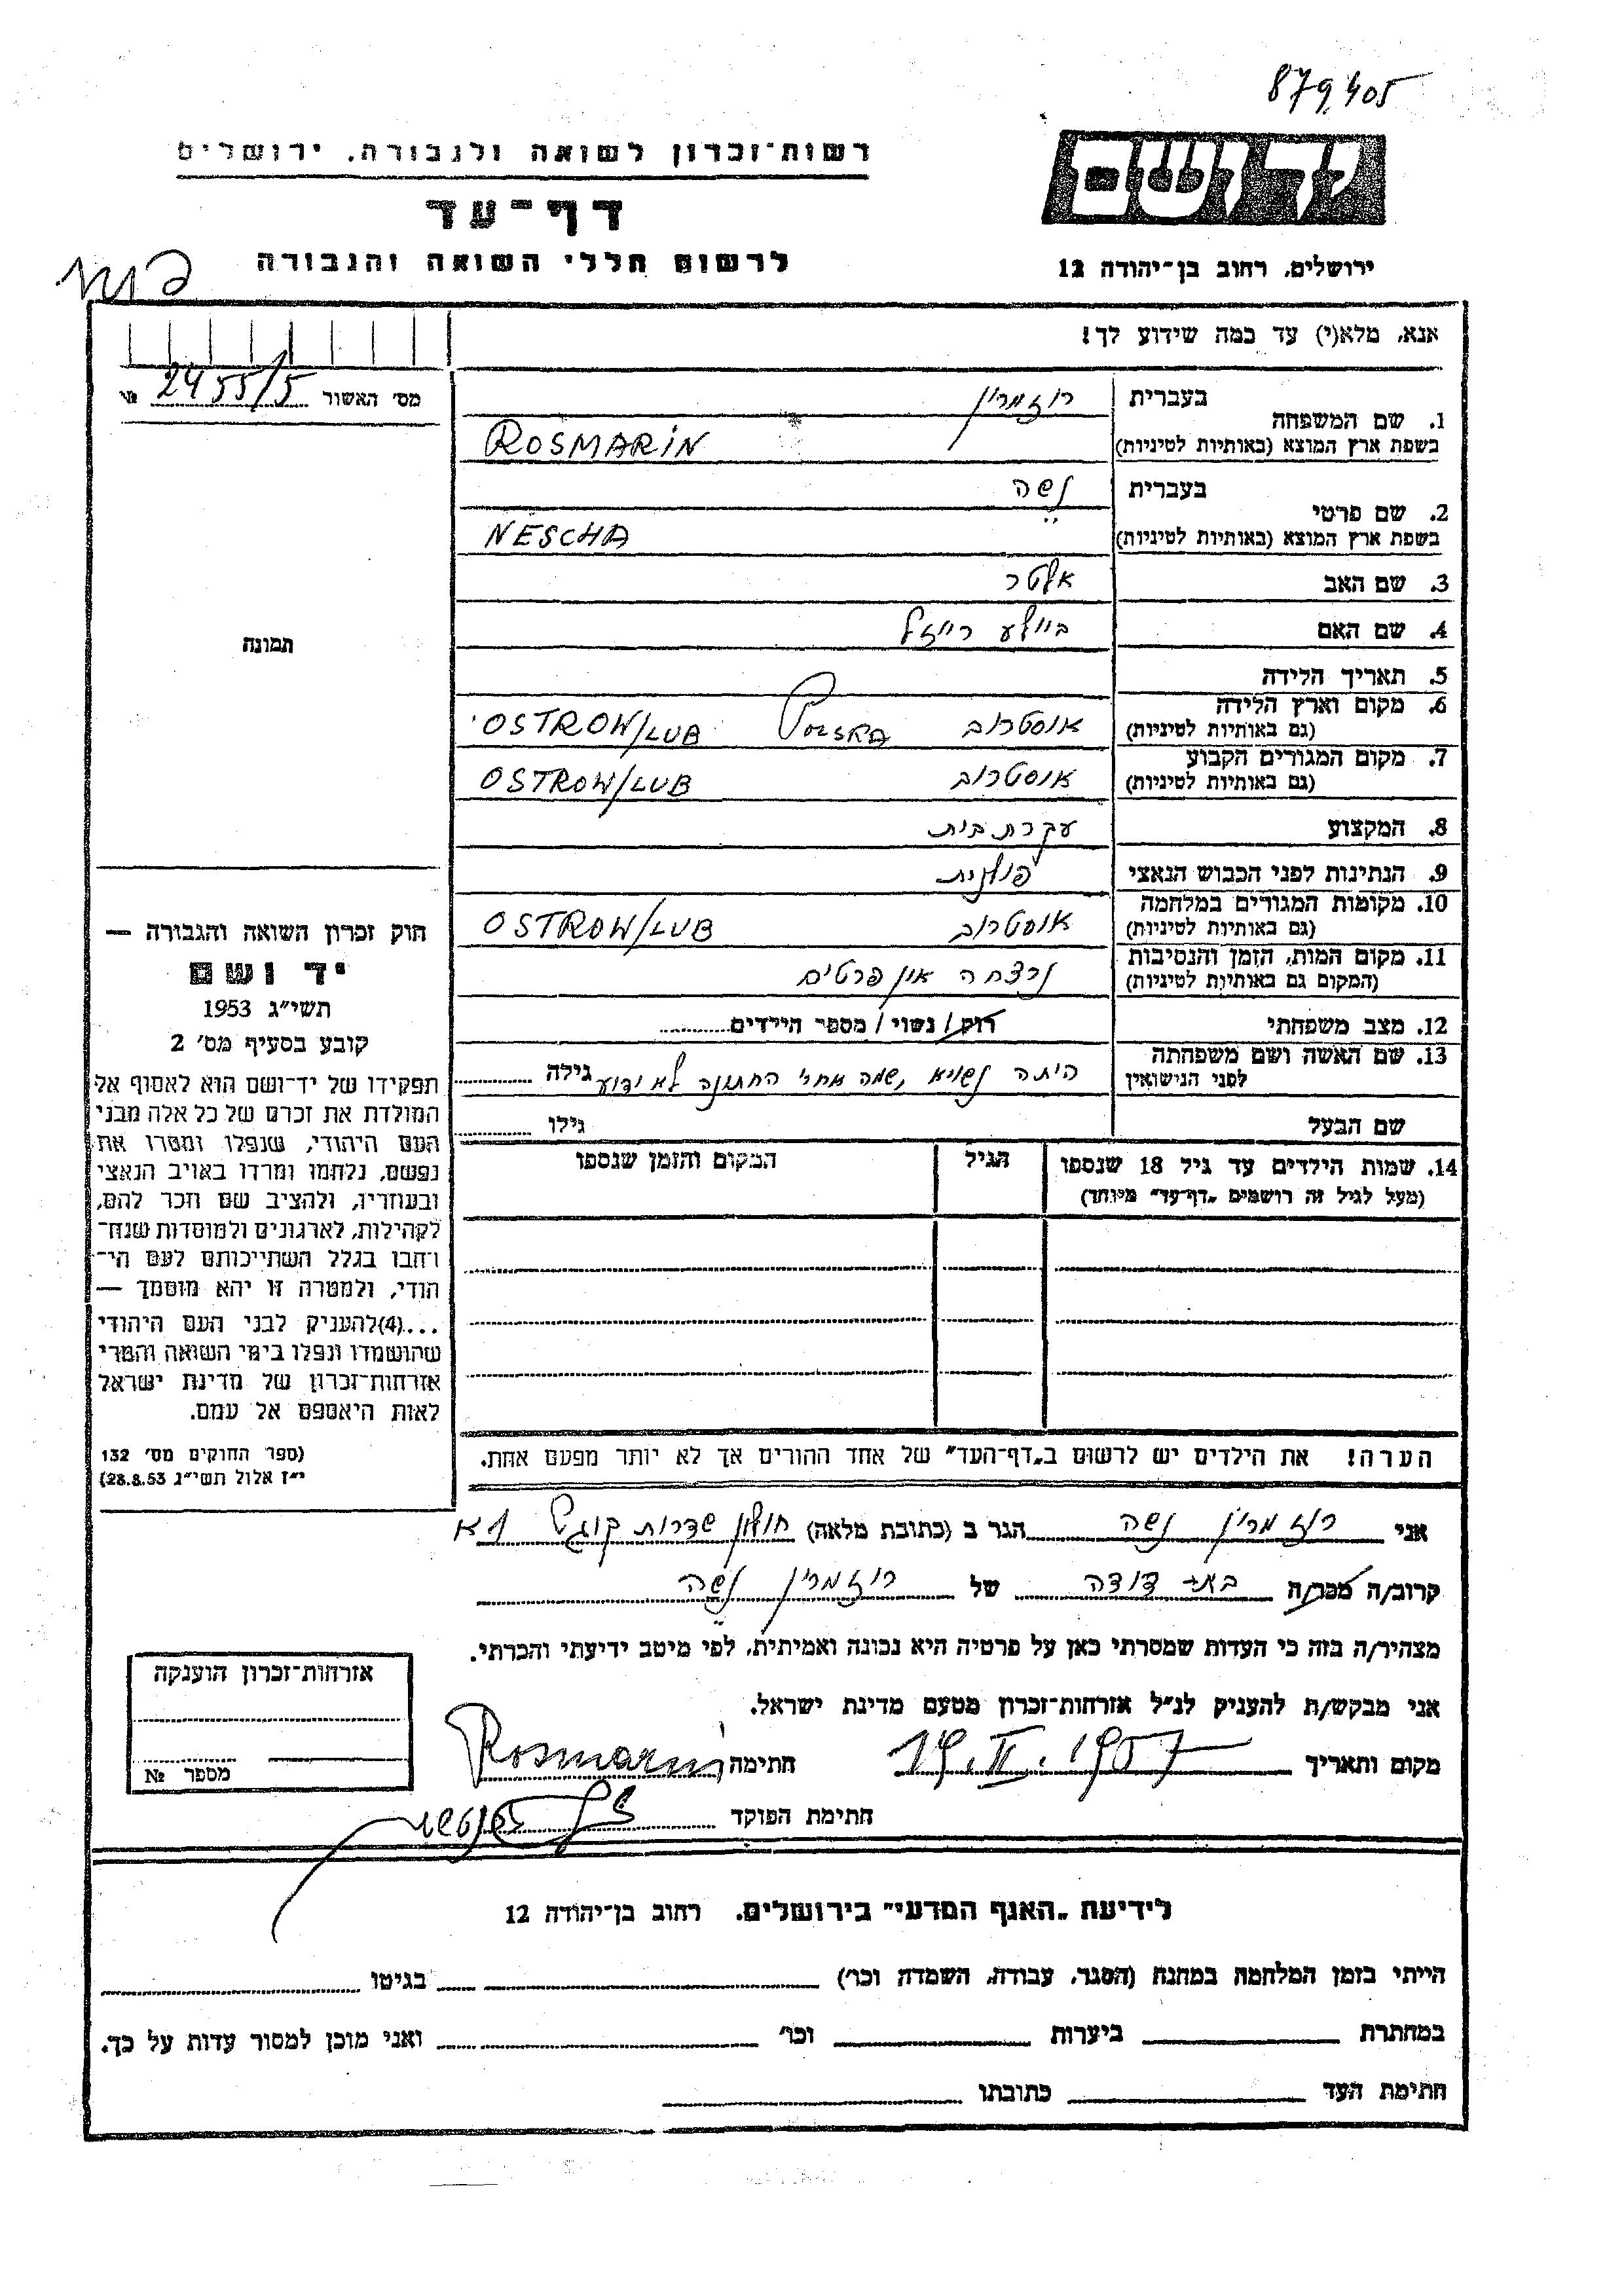 879405
יד ושם
רשות-זכרון לשואה ולגבורה, ירושלים
דף-עד
לרשום חללי השואה והגבורה
ירושלים, רחוב בן-יהודה 12
אנא, מלא(י) עד כמה שידוע לך!
מס' האשור 2455/5 №
תמונה
1. שם המשפחה בעברית רוזמרין
בשפת ארץ המוצא (באותיות לטיניות) ROSMARIN
2. שם פרטי בעברית נשה
בשפת ארץ המוצא (באותיות לטיניות) NESCHA
3. שם האב אלטר
4. שם האם ביילע רייזל
5. תאריך הלידה
6. מקום וארץ הלידה
(גם באותיות לטיניות) אוסטרוב POLSKA OSTROW/LUB
7. מקום המגורים הקבוע
(גם באותיות לטיניות) אוסטרוב OSTROW/LUB
8. המקצוע עקרת בית
9. הנתינות לפני הכבוש הנאצי פולנית
10. מקומות המגורים במלחמה
(גם באותיות לטיניות) אוסטרוב OSTROW/LUB
11. מקום המות, הזמן והנסיבות
(המקום גם באותיות לטיניות) נרצחה אין פרטים
12. מצב משפחתי רוק/ נשוי/ מספר הילדים
13. שם האשה ושם משפחתה
לפני הנישואין היתה נשויא, שמה אחרי החתונה לא ידוע גילה
שם הבעל גילו
14. שמות הילדים עד גיל 18 שנספו הגיל המקום והזמן שנספו
(מעל לגיל זה רושמים "דף-עד" מיוחד)
הערה! את הילדים יש לרשום ב"דף-העד" של אחד ההורים אך לא יותר מפעם אחת.
חוק זכרון השואה והגבורה —
יד ושם
תשי"ג 1953
קובע בסעיף מס' 2
תפקידו של יד-ושם הוא לאסוף אל
המולדת את זכרם של כל אלה מבני
העם היהודי, שנפלו ומסרו את
נפשם, נלחמו ומרדו באויב הנאצי
ובעוזריו, ולהציב שם וזכר להם,
לקהילות, לארגונים ולמוסדות שנח-
רבו בגלל השתייכותם לעם הי-
הודי, ולמטרה זו יהא מוסמך —
...(4)להעניק לבני העם היהודי
שהושמדו ונפלו בימי השואה והמרי
אזרחות-זכרון של מדינת ישראל
לאות היאספם אל עמם.
(ספר החוקים מס' 132
י"ז אלול תשי"ג 28.8.53)
אני רוזמרין נשה הגר ב (כתובת מלאה) חולון שדרות קוגל 1א
קרוב/ה מכר/ה בת דודה של רוזמרין נשה
מצהיר/ה בזה כי העדות שמסרתי כאן על פרטיה היא נכונה ואמיתית, לפי מיטב ידיעתי והכרתי.
אני מבקש/ת להעניק לנ"ל אזרחות-זכרון מטעם מדינת ישראל.
מקום ותאריך 19.II.1957 חתימה Rosmarin
חתימת הפוקד
אזרחות-זכרון הוענקה
מספר №
לידיעת "האגף המדעי" בירושלים, רחוב בן-יהודה 12
הייתי בזמן המלחמה במחנה (הסגר, עבודה, השמדה וכו') בגיטו
במחתרת ביערות וכו' ואני מוכן למסור עדות על כך.
חתימת העד כתובתו